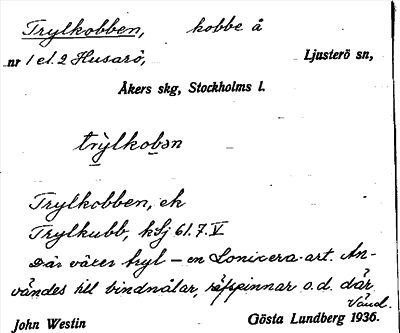 Trylkobben, kobbe å
nr 1 el. 2 Husarö, Ljusterö sn,
Åkers skg, Stockholms l.
trỳlkobən
Trylkobben, ek
Trylkubb, kSj 61.7.V
Där växer tryl – en Lonicera-art. An-
vändes till bindnålar, räfspinnar o.d. där
Vänd.
John Westin Gösta Lundberg 1936.